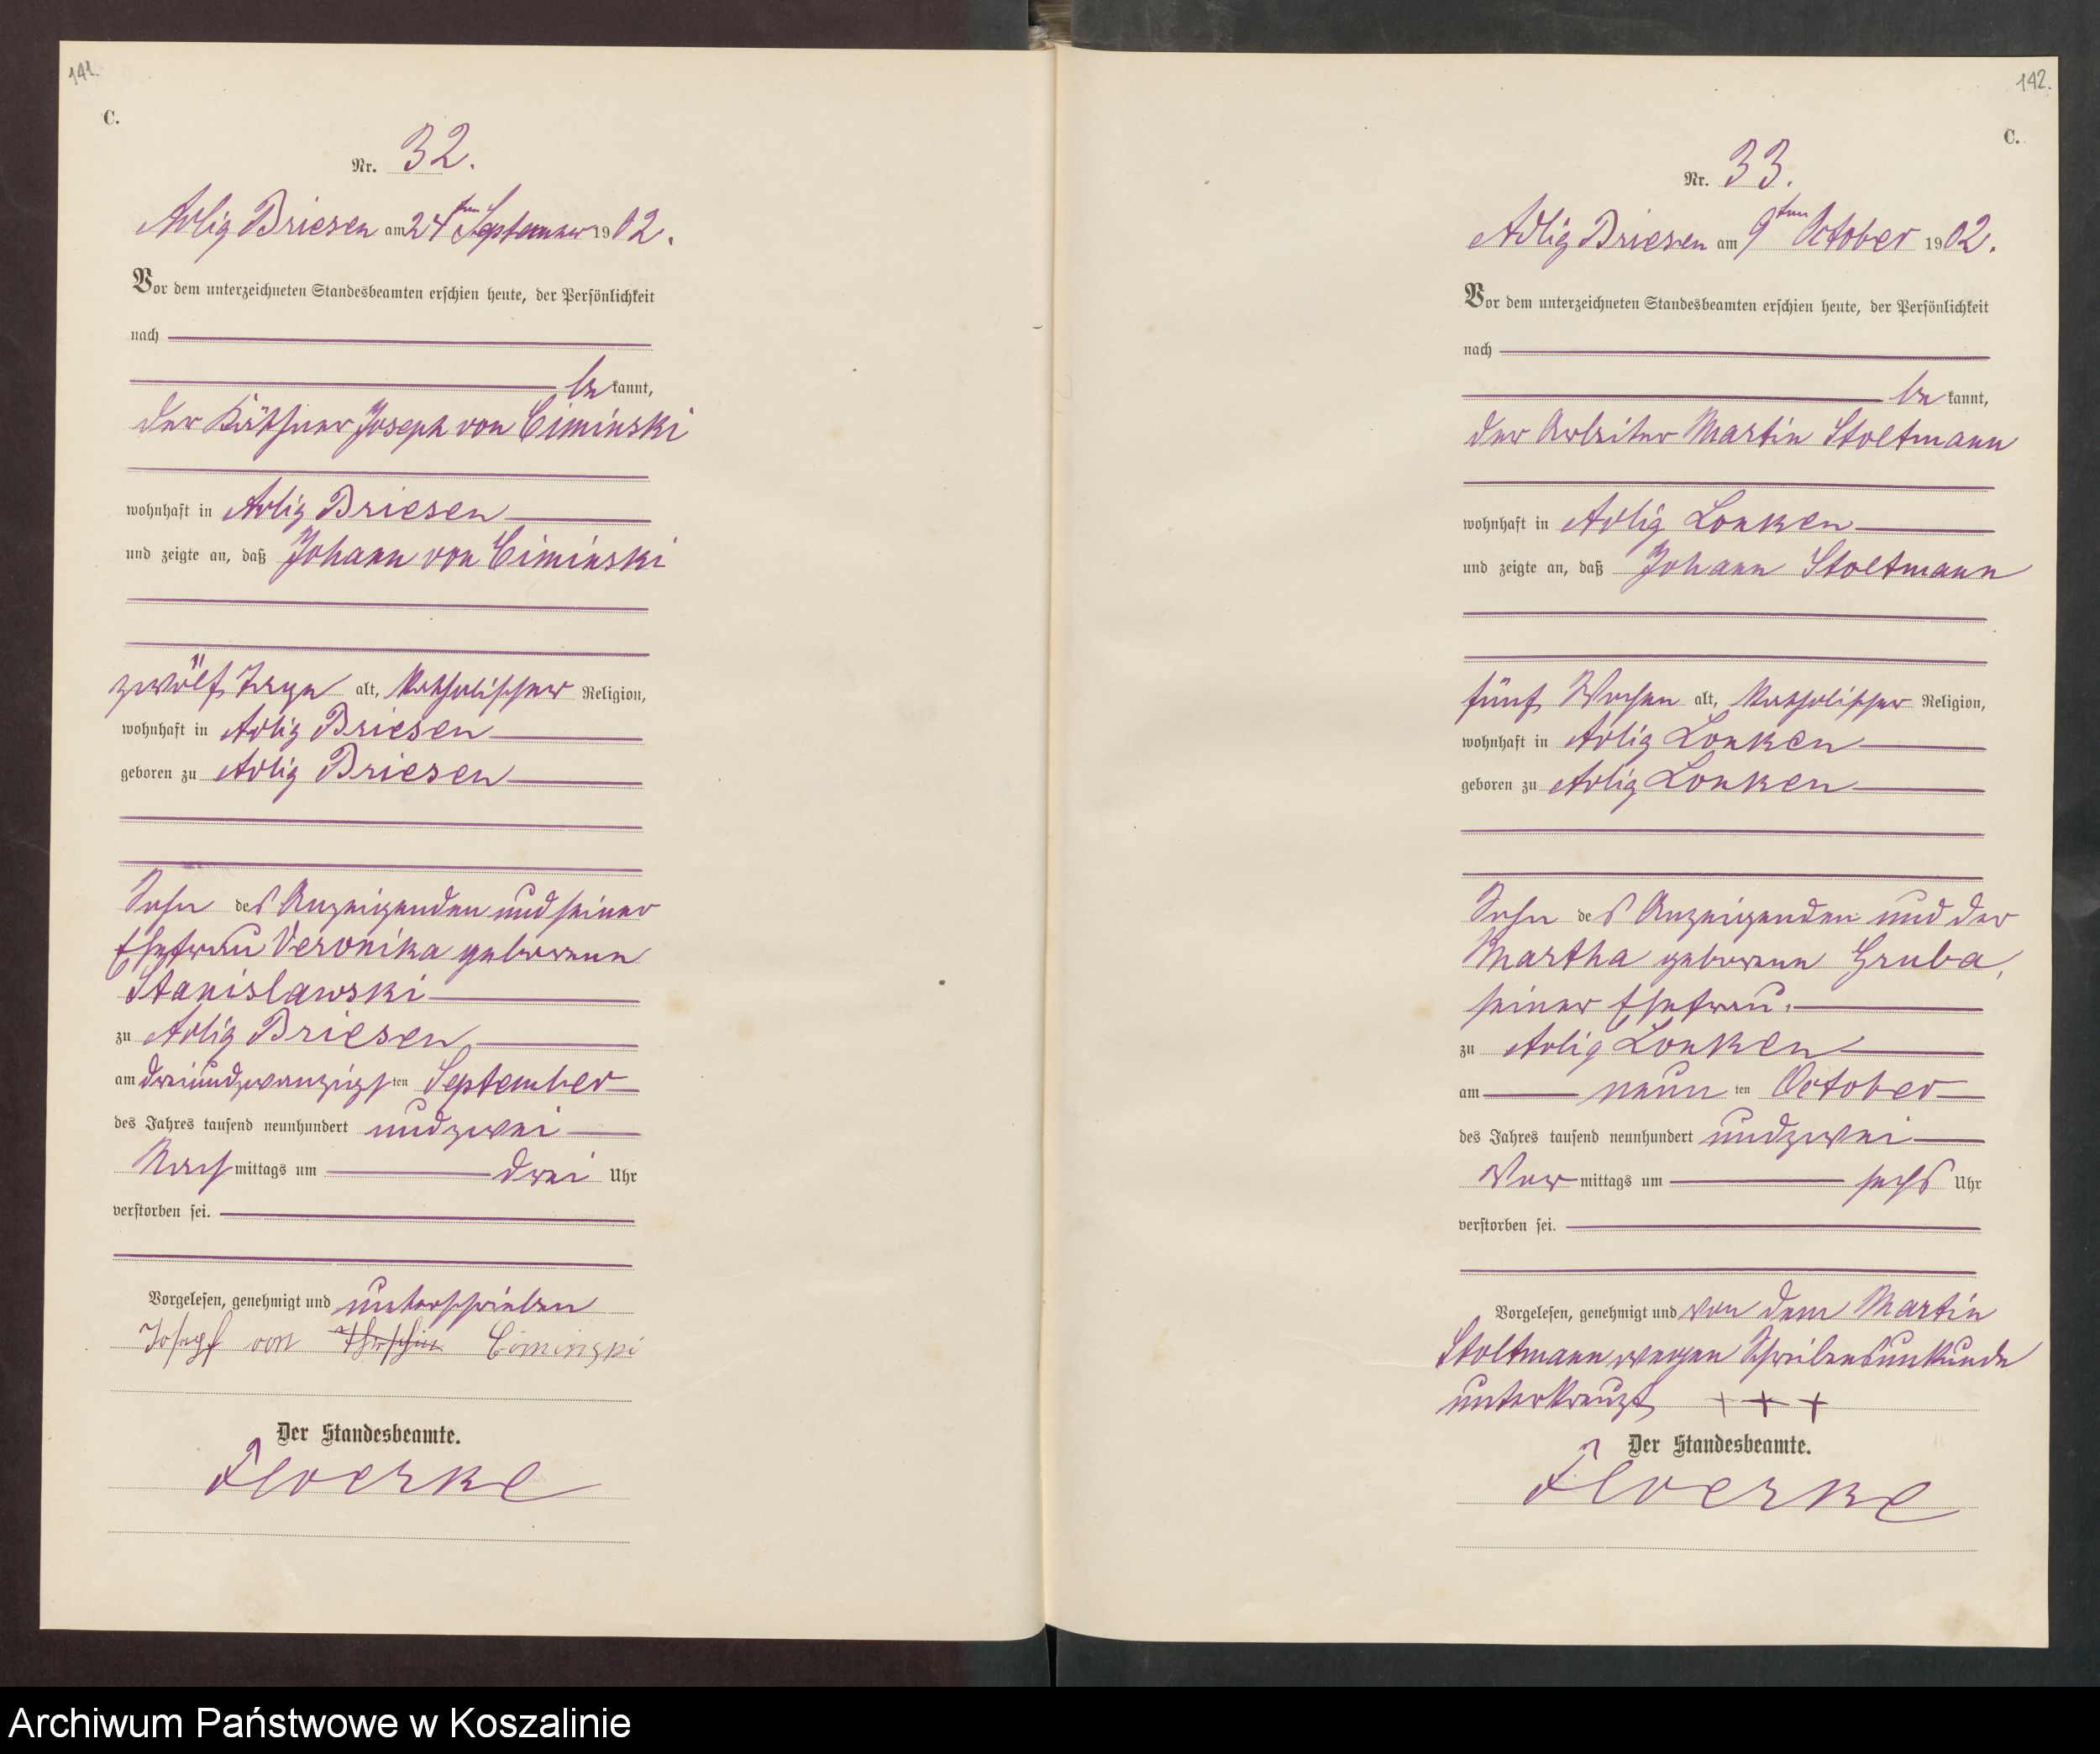 141.
C.
Nr. 32.
Adlig Briesen am 24ten September 1902.
Vor dem unterzeichneten Standesbeamten erschien heute, der Persönlichkeit
nach
be kannt,
der Käthner Joseph von Ciminski
wohnhaft in Adlig Briesen
und zeigte an, daß Johann von Ciminski
zwölf Tage alt, katholischer Religion,
wohnhaft in Adlig Briesen
geboren zu Adlig Briesen
Sohn des Anzeigenden und seiner
Ehefrau Veronika geborene
Stanislawski
zu Adlig Briesen
am dreiundzwanzigsten September
des Jahres tausend neunhundert und zwei
Nachmittags um drei Uhr
verstorben sei.
Vorgelesen, genehmigt und unterschrieben
Josepf von Ciminzki
Der Standesbeamte.
Floerke
142.
C.
Nr. 33.
Adlig Briesen am 9ten October 1902.
Vor dem unterzeichneten Standesbeamten erschien heute, der Persönlichkeit
nach
be kannt,
der Arbeiter Martin Stoltmann
wohnhaft in Adlig Lonken
und zeigte an, daß Johann Stoltmann
fünf Wochen alt, katholischer Religion,
wohnhaft in Adlig Lonken
geboren zu Adlig Lonken
Sohn des Anzeigenden und der
Martha geborene Gruba,
seiner Ehefrau.
zu Adlig Lonken
am neunten October
des Jahres tausend neunhundert und zwei
Vormittags um sechs Uhr
verstorben sei.
Vorgelesen, genehmigt und von dem Martin
Stoltmann wegen Schreibensunkunde
unterkreuzt + + +
Der Standesbeamte.
Floerke
Archiwum Państwowe w Koszalinie